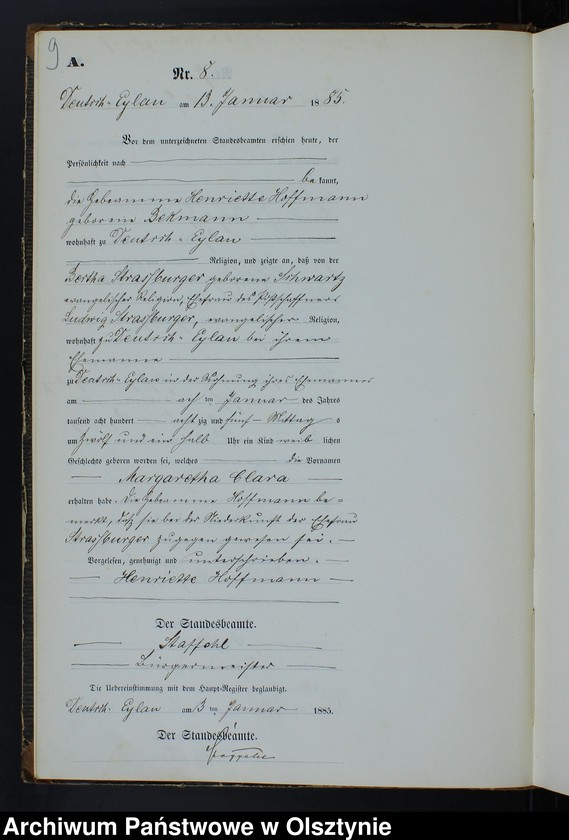 9
A.
Nr. 8.
Deutsch-Eylau am 13. Januar 1885.
Vor dem unterzeichneten Standesbeamten erschien heute, der
Persönlichkeit nach
bekannt,
die Hebeamme Henriette Hoffmann
geborene Bekmann
wohnhaft zu Deutsch-Eylau
Religion, und zeigte an, daß von der
Bertha Strassburger geborene Schwartz
evangelischer Religion, Ehefrau des Postschaffners
Ludwig Strassburger, evangelischer Religion,
wohnhaft zu Deutsch-Eylau bei ihrem
Ehemanne
zu Deutsch-Eylau in der Wohnung ihres Ehemannes
am acht ten Januar des Jahres
tausend acht hundert achtzig und fünf Mittag s
um zwölf und ein halb Uhr ein Kind weib lichen
Geschlechts geboren worden sei, welches die Vornamen
Margaretha Clara
erhalten habe. Die Hebeamme Hoffmann be-
merkt, daß sie bei der Niederkunft der Ehefrau
Strassburger zugegen gewesen sei.
Vorgelesen, genehmigt und unterschrieben.
Henriette Hoffmann
Der Standesbeamte.
Bürgermeister
Die Uebereinstimmung mit dem Haupt-Register beglaubigt.
Deutsch-Eylau am 13 ten Januar 1885.
Der Standesbeamte.
Archiwum Państwowe w Olsztynie